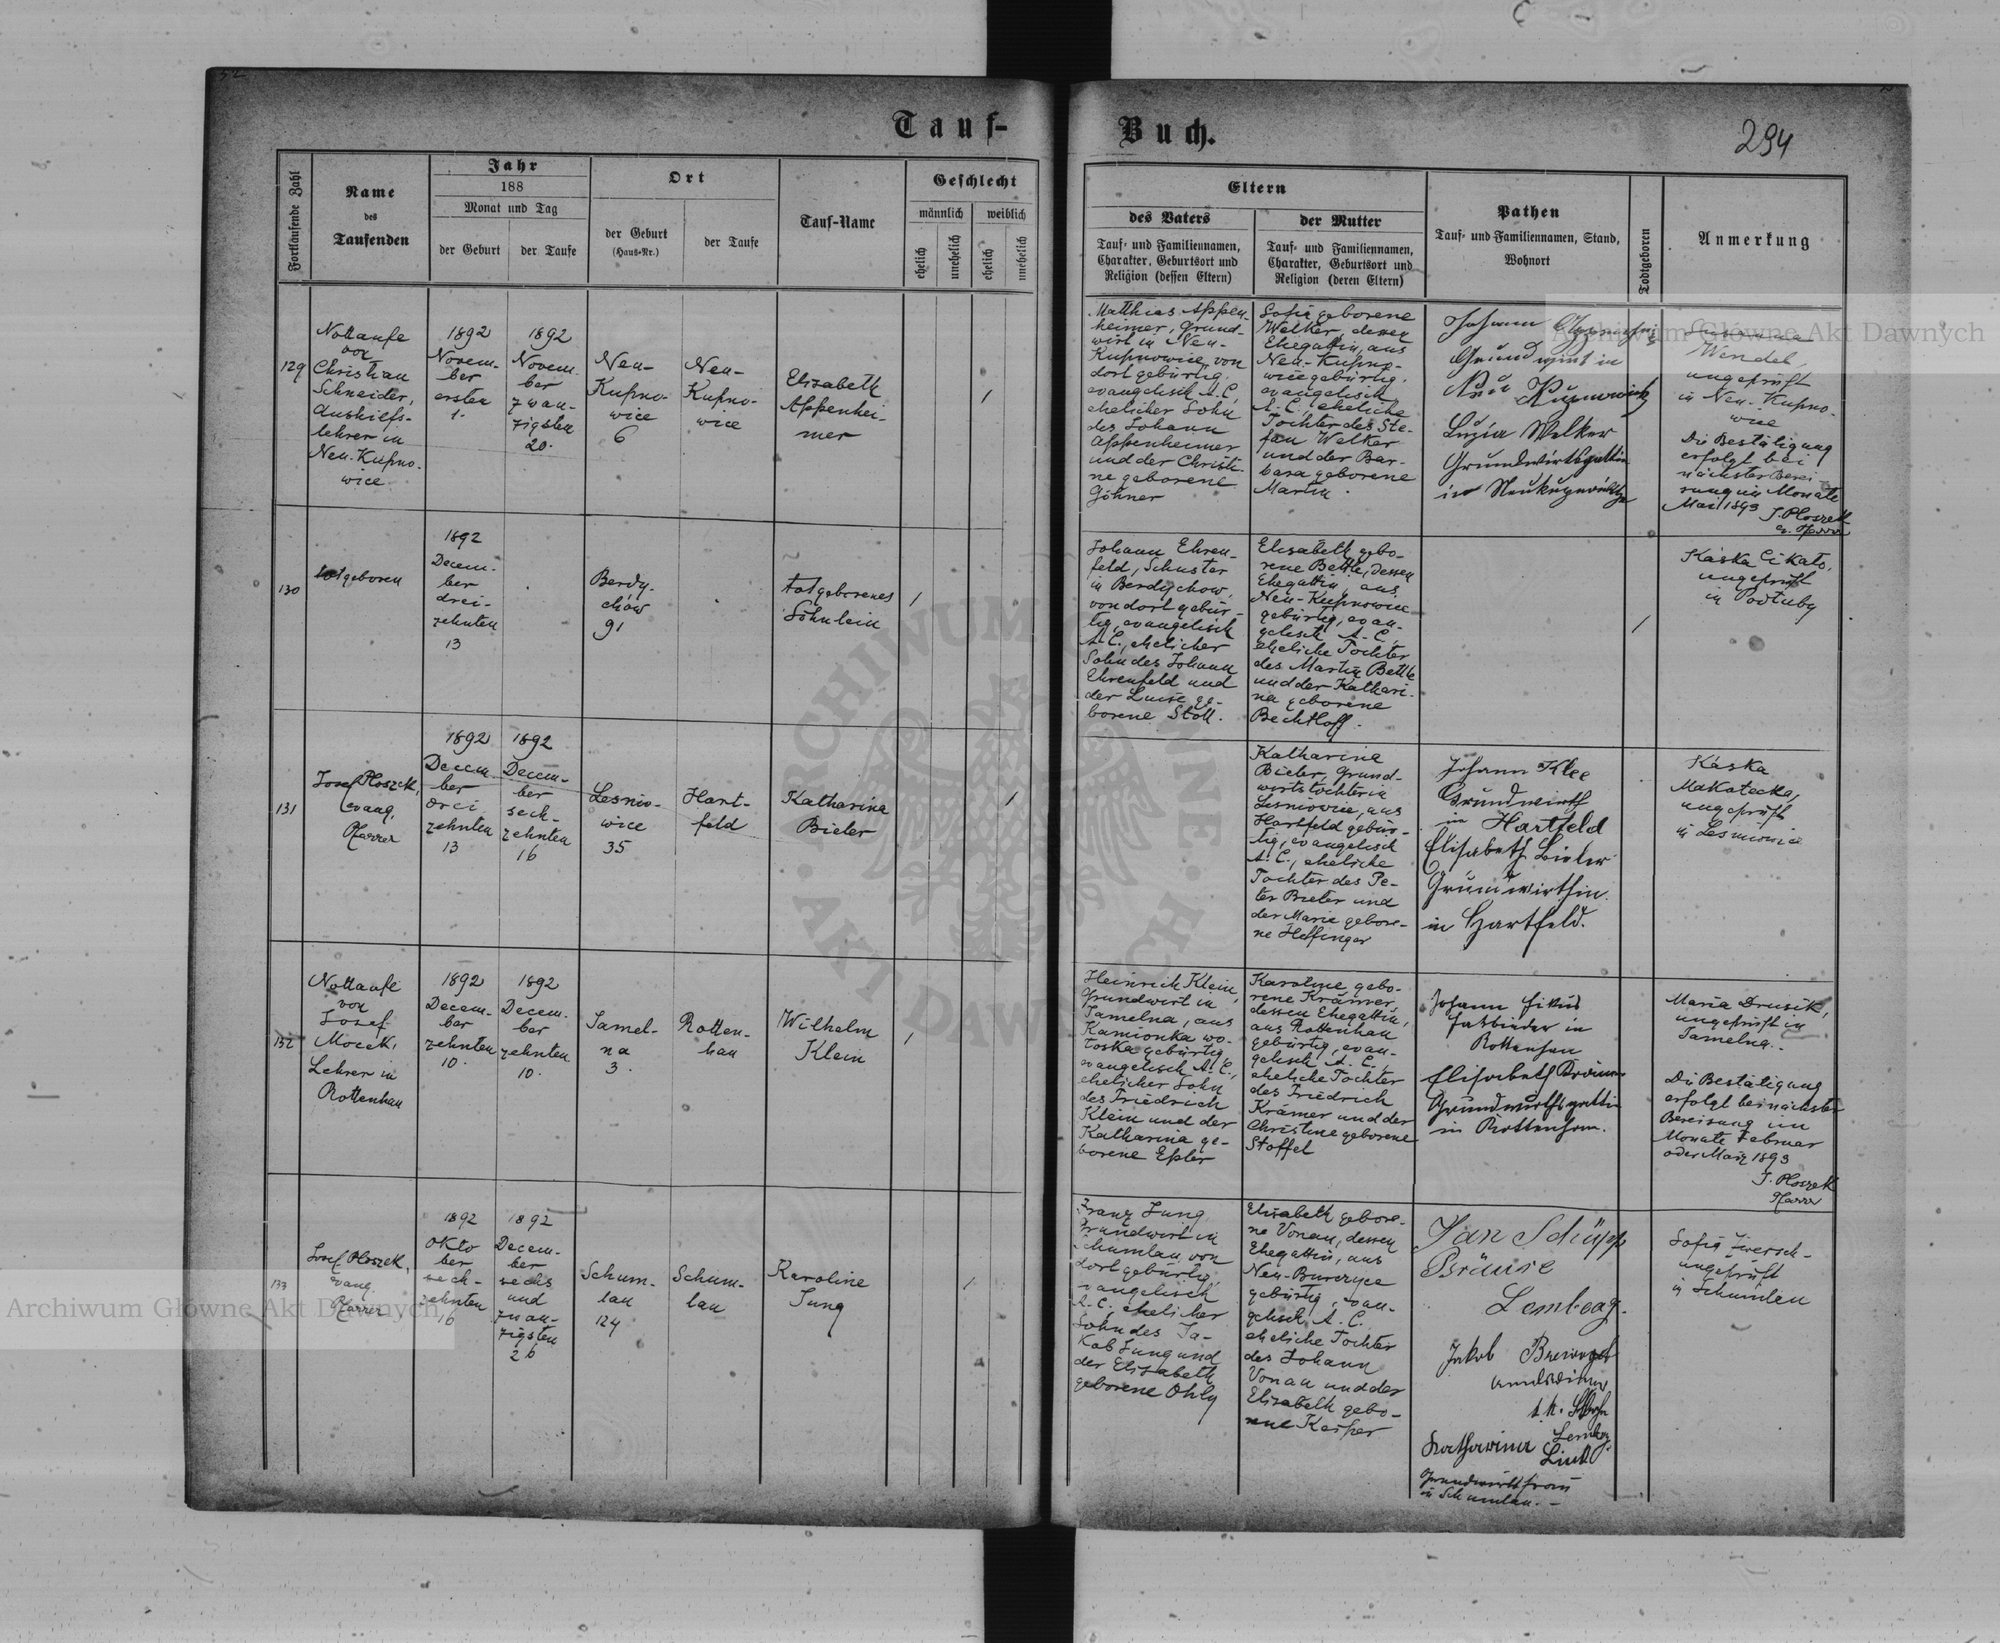 Tauf-
Buch.
294
Fortlaufende Zahl
Name
des
Taufenden
Jahr
188
Monat und Tag
der Geburt
der Taufe
Ort
der Geburt
(Haus-Nr.)
der Taufe
Tauf-Name
Geschlecht
männlich
weiblich
ehelich
unehelich
ehelich
unehelich
Eltern
des Vaters
Tauf- und Familiennamen,
Charakter, Geburtsort und
Religion (dessen Eltern)
der Mutter
Tauf- und Familiennamen,
Charakter, Geburtsort und
Religion (deren Eltern)
Pathen
Tauf- und Familiennamen, Stand,
Wohnort
Todtgeboren
Anmerkung
129
Nottaufe
von
Christian
Schneider,
Aushilfs-
lehrer in
Neu-Kupno-
wice
1892
Novem-
ber
ersten
1.
1892
Novem-
ber
zwan-
zigsten
20.
Neu-
Kupno-
wice
6
Neu-
Kupno-
wice
Elisabeth
Appenhei-
mer
1
Matthias Appen-
heimer, Grund-
wirt in Neu-
Kupnowice, von
dort gebürtig,
evangelisch A.C.,
ehelicher Sohn
des Johann
Appenheimer
und der Christi-
ne geborene
Göhner
Sofia geborene
Welker, dessen
Ehegattin, aus
Neu-Kupno-
wice gebürtig,
evangelisch
A.C., eheliche
Tochter des Ste-
fan Welker
und der Bar-
bara geborene
Martin.
Johann
Grundwirt in
Neu Kupnowice
Luzia Welker
Grundwirtsgattin
in
Susanna
Wendel,
ungeprüft
in Neu-Kupno-
wice
Die Bestätigung
erfolgt bei
nächster Berei-
sung im Monate
Mai 1893
J. Ploszek
ev. Pfarrer
130
totgeboren
1892
Decem-
ber
drei-
zehnten
13
Berdy-
chów
91
totgeborenes
Söhnlein
1
Johann Ehren-
feld, Schuster
in Berdychow,
von dort gebür-
tig, evangelisch
A.C., ehelicher
Sohn des Johann
Ehrenfeld und
der Luise ge-
borene Stoll.
Elisabeth gebo-
rene Bettle, dessen
Ehegattin, aus
Neu-Kupnowice
gebürtig, evan-
gelisch A.C.,
eheliche Tochter
des Martin Bettle
und der Kathari-
na geborene
Bechtloff.
1
Káska Cikato,
ungeprüft
in Podłuby
131
Josef Ploszek,
evang.
Pfarrer
1892
Decem-
ber
drei
zehnten
13
1892
Decem-
ber
sech-
zehnten
16
Lesnio-
wice
35
Hart-
feld
Katharina
Bieler
1
Katharina
Bieler, Grund-
wirtstochter in
Lesniowice, aus
Hartfeld gebür-
tig, evangelisch
A.C., eheliche
Tochter des Pe-
ter Bieler und
der Marie gebore-
ne Heffinger
Johann Klee
Grundwirth
in Hartfeld
Elisabeth Bieler
Grundwirthin
in Hartfeld.
Káska
Makatecka,
ungeprüft
in Lesniowice
132
Nottaufe
von
Josef
Mocek,
Lehrer in
Rottenhan
1892
Decem-
ber
zehnten
10.
1892
Decem-
ber
zehnten
10.
Jamel-
na
3.
Rotten-
han
Wilhelm
Klein
1
Heinrich Klein,
Grundwirt in
Jamelna, aus
Kamionka wo-
łoska gebürtig,
evangelisch A.C.,
ehelicher Sohn
des Friedrich
Klein und der
Katharina ge-
borene Epler
Karoline gebo-
rene Krämer,
dessen Ehegattin,
aus Rottenhan
gebürtig, evan-
gelisch A.C.,
eheliche Tochter
des Friedrich
Krämer und der
Christine geborene
Stoffel
Johann Fikus
Fasbinder in
Rottenhan
Elisabeth Krämer
Grundwirthsgattin
in Rottenhan.
Maria Drusik,
ungeprüft in
Jamelna.
Die Bestätigung
erfolgt bei nächster
Bereisung im
Monate Februar
oder März 1893
J. Ploszek
Pfarrer
133
Josef Ploszek,
evang.
Pfarrer
1892
Okto
ber
sech-
zehnten
16
1892
Decem-
ber
sechs
und
zwan-
zigsten
26
Schum-
lau
124
Schum-
lau
Karoline
Jung
1
Franz Jung,
Grundwirt in
Schumlau, von
dort gebürtig,
evangelisch
A.C., ehelicher
Sohn des Ja-
kob Jung und
der Elisabeth
geborene Ohly
Elisabeth gebore-
ne Vonau, dessen
Ehegattin, aus
Neu-Burczyce
gebürtig, evan-
gelisch A.C.,
eheliche Tochter
des Johann
Vonau und der
Elisabeth gebo-
rene Kasper
Jan Schüpp
Lemberg.
Jakob
Lemberg
Katharina
Grundwirtsfrau
in Schumlau.
Sofia Zwersch-
ungeprüft
in Schumlau
Archiwum Główne Akt Dawnych
Archiwum Główne Akt Dawnych
ARCHIWUM GŁÓWNE AKT DAWNYCH